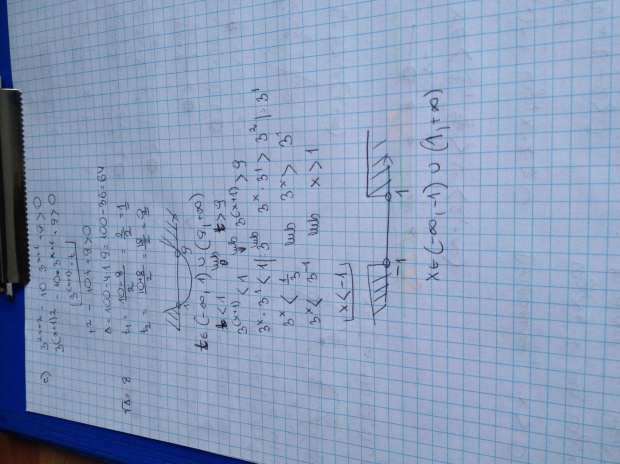 c) 3^{2x+2} - 10 · 3^{x+1} + 9 > 0
3^{(x+1)2} - 10 · 3^{x+1} + 9 > 0
3^{(x+1)} = t
t² - 10t + 9 > 0
Δ = 100 - 4·1·9 = 100 - 36 = 64
√Δ = 8
t₁ = \frac{10-8}{2} = \frac{2}{2} = 1
t₂ = \frac{10+8}{2} = \frac{18}{2} = 9
1 9
t ∈ (-∞, 1) ∪ (9, +∞)
t < 1 lub t > 9
3^{(x+1)} < 1 lub 3^{(x+1)} > 9
3^x · 3^1 < 1 |: 3 lub 3^x · 3^1 > 3^2 |: 3^1
3^x < \frac{1}{3} lub 3^x > 3^1
3^x < 3^{-1} lub x > 1
x < -1
-1 1
x ∈ (-∞, -1) ∪ (1, +∞)